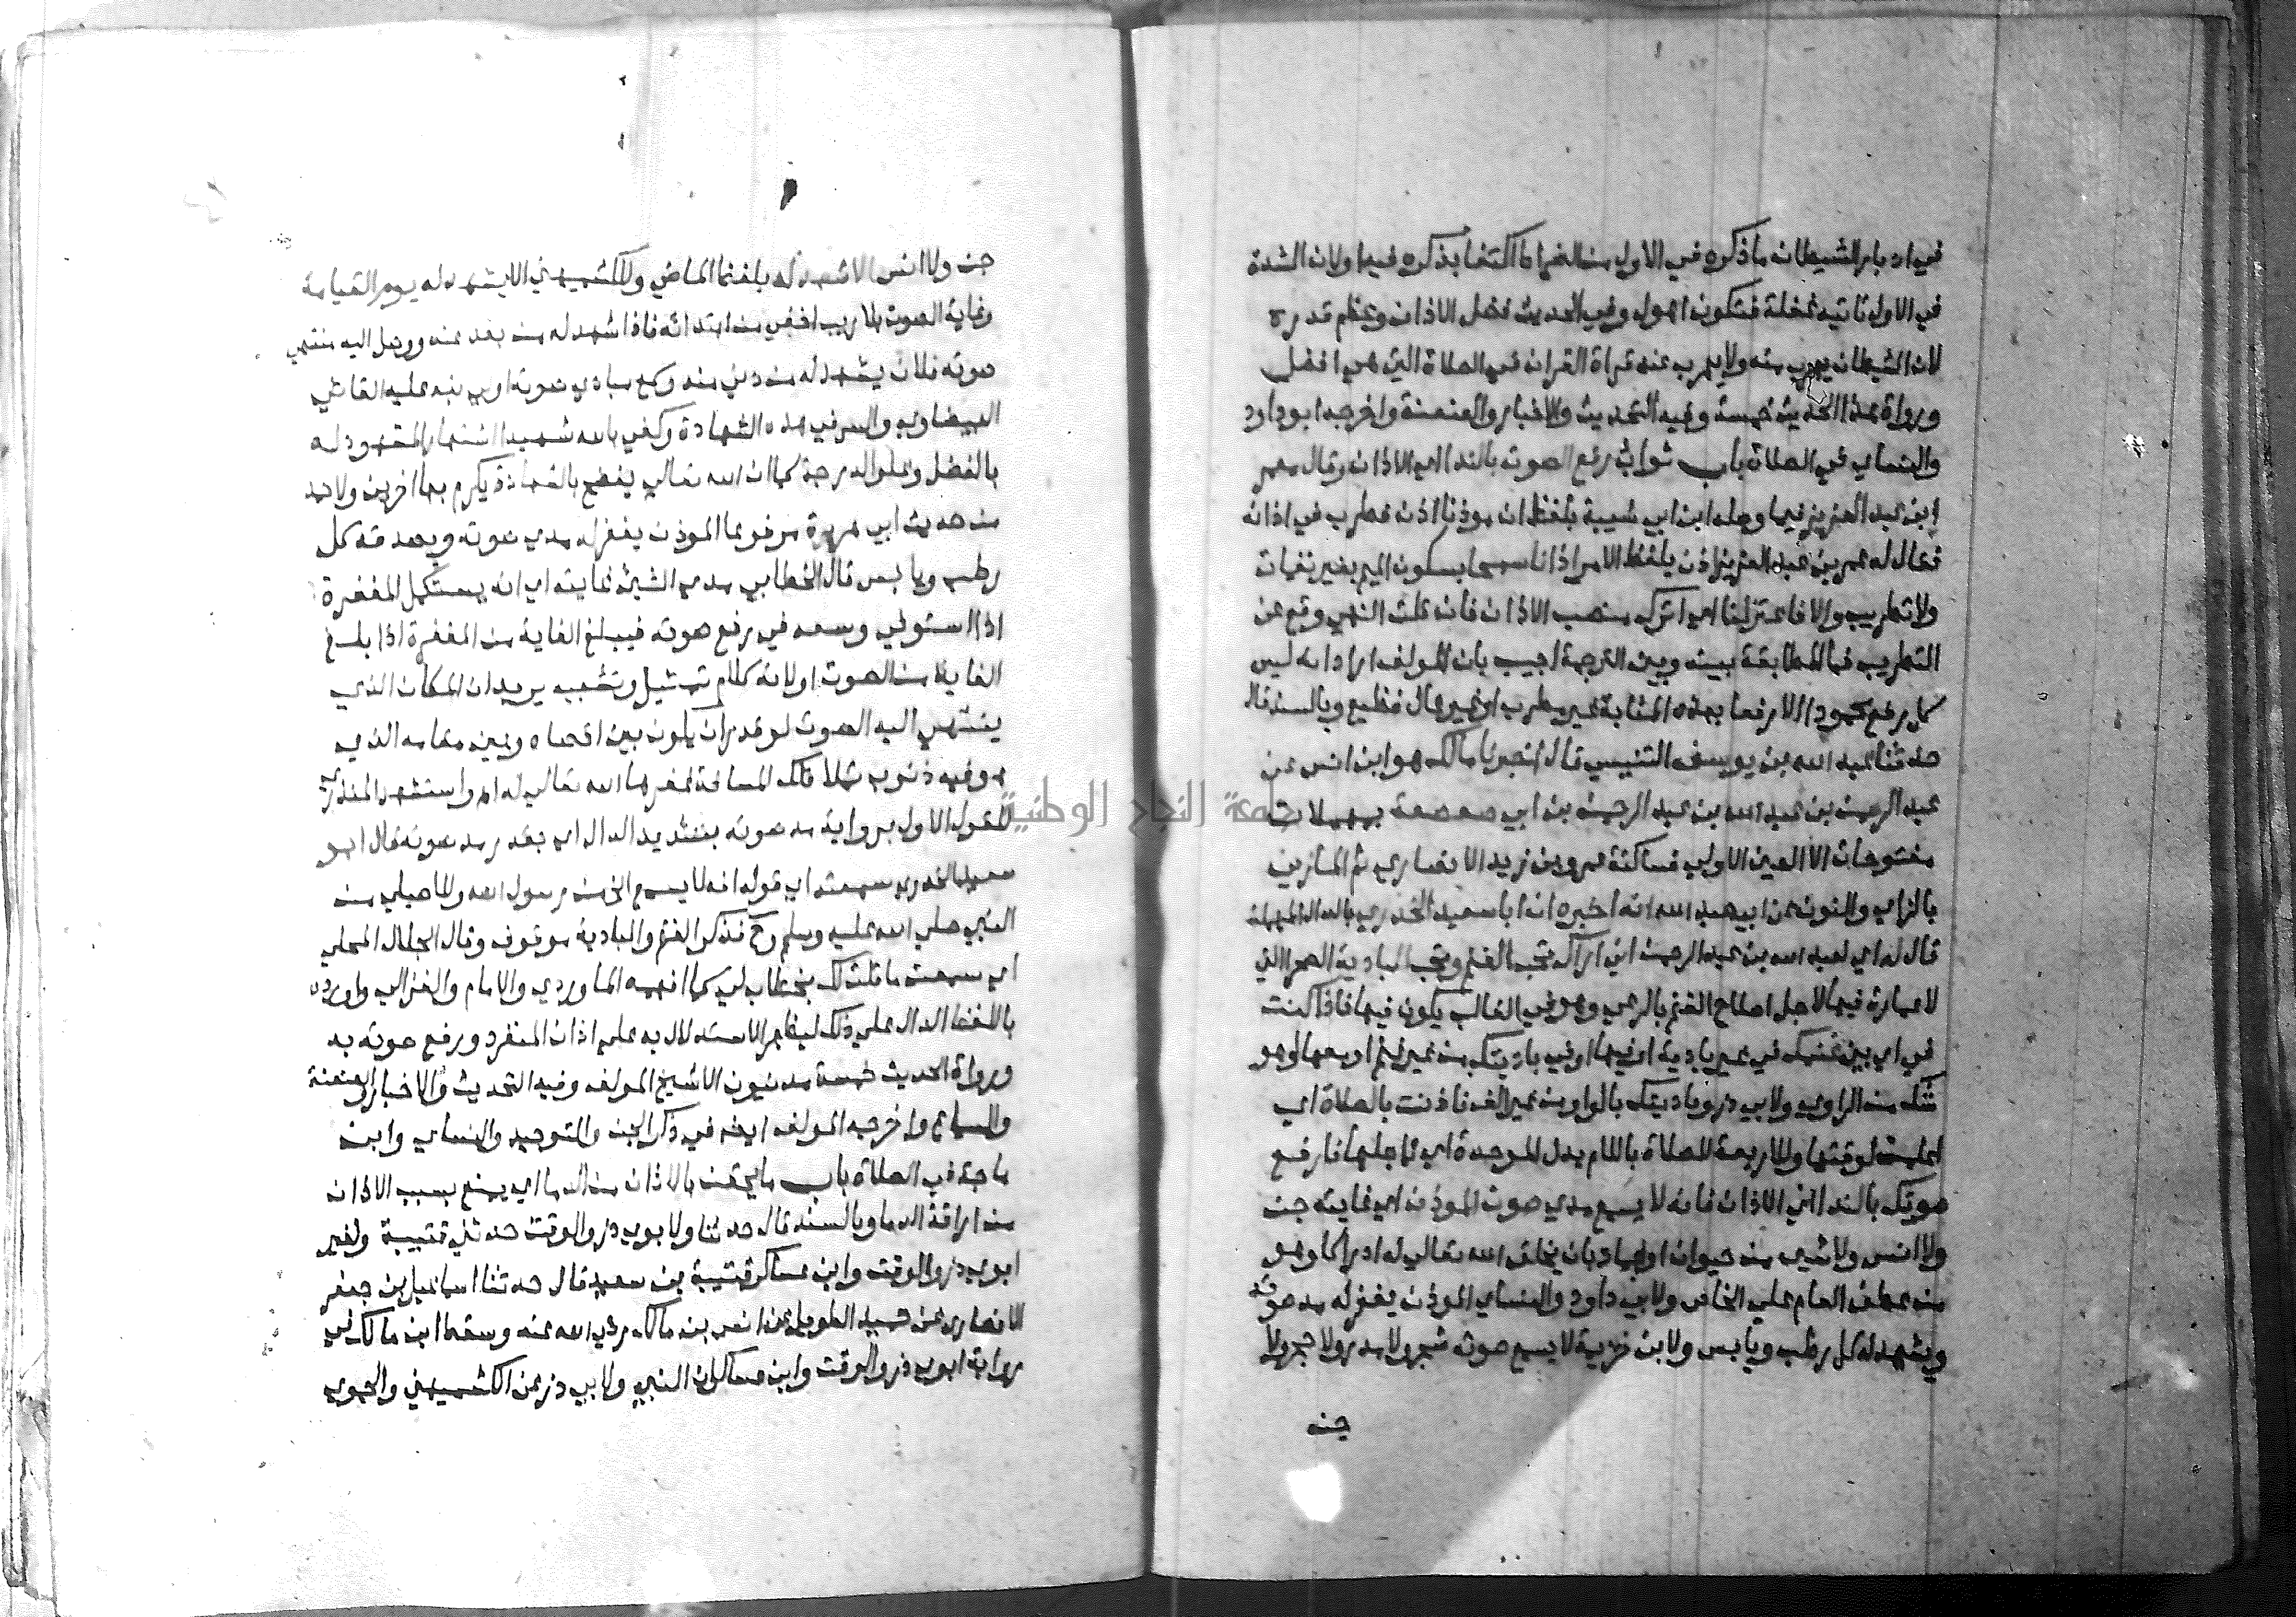 في ادبار الشيطان ما ذكره في الاول من الضراط اكتفا بذكره فيها ولان الشدة
في الاول تاتيه غفلة فتكون اهول وفي الحديث فضل الاذان وعظم قدره
لان الشيطان يهرب منه ولا يهرب عند قراة القران في الصلاة التي هي افضل
ورواة هذا الحديث خمسة وفيه التحديث والاخبار والعنعنة واخرجه ابو داود
والنساي في الصلاة باب ثواب رفع الصوت بالندا اي الاذان وقال عمر
ابن عبد العزيز فيما وصله ابن ابي شيبة بلفظ ان موذنا اذن فطرب في اذانه
فقال له عمر بن عبد العزيز اذن بلفظ الامر اذانا سمحا بسكون الميم بغير نغمات
ولا تطريب والا فاعتزلنا اي اترك منصب الاذان فان قلت النهي وقع عن
التطريب فما المطابقة بينه وبين الترجمة اجيب بان المولف اراد انه ليس
كل رفع محمودا الا رفعا بهذه المثابة غير مطرب او غير عال فظيع وبالسند قال
حدثنا عبد الله بن يوسف التنيسي قال اخبرنا مالك هو ابن انس عن
عبد الرحمن بن عبد الله بن عبد الرحمن بن ابي صعصعة بمهملات
مفتوحات الا العين الاولي فساكنة عمرو بن زيد الانصاري ثم المازني
بالزاي والنون عن ابيه عبد الله انه اخبره ان ابا سعيد الخدري بالدال المهملة
قال له اي لعبد الله بن عبد الرحمن اني اراك تحب الغنم وتحب البادية الصحرا التي
لا عمارة فيها لاجل اصلاح الغنم بالرعي وهو في الغالب يكون فيها فاذا كنت
في اي بين غنمك في غير بادية او فيها او في باديتك من غير غنم او معها او هو
شك من الراوي ولابي ذر وباديتك بالواو من غير الف فاذنت بالصلاة اي
اعلمت لوقتها وللاربعة للصلاة باللام بدل الموحدة اي لاجلها فارفع
صوتك بالندا اي الاذان فانه لا يسمع مدي صوت الموذن اي غايته جن
ولا انس ولا شي من حيوان او جماد بان يخلق الله تعالي له ادراكا وهو
من عطف العام علي الخاص ولابي داود والنساي الموذن يغفر له مد صوته
ويشهد له كل رطب ويابس ولابن خزيمة لا يسمع صوته شجر ولا مدر ولا حجر ولا
جن
جن ولا انس الا شهد له بلفظ الماضي وللكشميهني الا يشهد له يوم القيامة
وغاية الصوت بلا ريب اخفي من ابتدائه فاذا شهد له من بعد عنه ووصل اليه منتهي
صوته فلان يشهد له من دني منه وسمع مبادي صوته اولي نبه عليه القاضي
البيضاوي والسر في هذه الشهادة وكفي بالله شهيدا اشتهار المشهود له
بالفضل وعلو الدرجة كما ان الله تعالي يفضح بالشهادة يكرم بها اخرين ولاحمد
من حديث ابي هريرة مرفوعا الموذن يغفر له مدي صوته ويصدقه كل
رطب ويابس قال الخطابي مدي الشي غايته اي انه يستكمل المغفرة
اذا استوفي وسعه في رفع صوته فيبلغ الغاية من المغفرة اذا بلغ
الغاية من الصوت اولانه كلام تمثيل وتشبيه يريد ان المكان الذي
ينتهي اليه الصوت لو قدر ان يكون بين اقصاه وبين مقامه الذي
هو فيه ذنوب تملا تلك المسافة لغفرها الله تعالي له اهـ واستشهد المنذري
للقول الاول برواية مد صوته بتشديد الدال اي بقدر مد صوته قال ابو
سعيد الخدري سمعته اي قوله انه لا يسمع الخ من رسول الله وللاصيلي من
النبي صلي الله عليه وسلم وح فذكر الغنم والبادية موقوف وقال الجلال المحلي
اي سمعت ما قلت لك بخطاب لي كما افهمه الماوردي والامام والغزالي واورده
باللفظ الدال علي ذلك ليظهر الاستدلال به علي اذان المنفرد ورفع صوته به
ورواة الحديث خمسة مدنيون الا شيخ المولف وفيه التحديث والاخبار والعنعنة
والسماع واخرجه المولف ايضا في ذكر الجن والتوحيد والنساي وابن
ماجة في الصلاة باب ما يحقن بالاذان من الدما اي يمنع بسبب الاذان
من اراقة الدما وبالسند قال حدثنا ولابوي ذر والوقت حدثني قتيبة ولغير
ابوي ذر والوقت وابن عساكر قتيبة بن سعيد قال حدثنا اسماعيل بن جعفر
الانصاري عن حميد الطويل عن انس بن مالك رضي الله عنه وسقط ابن مالك في
رواية ابوي ذر والوقت وابن عساكر ان النبي ولابي ذر عن الكشميهني والحموي
جامعة النجاح الوطنية